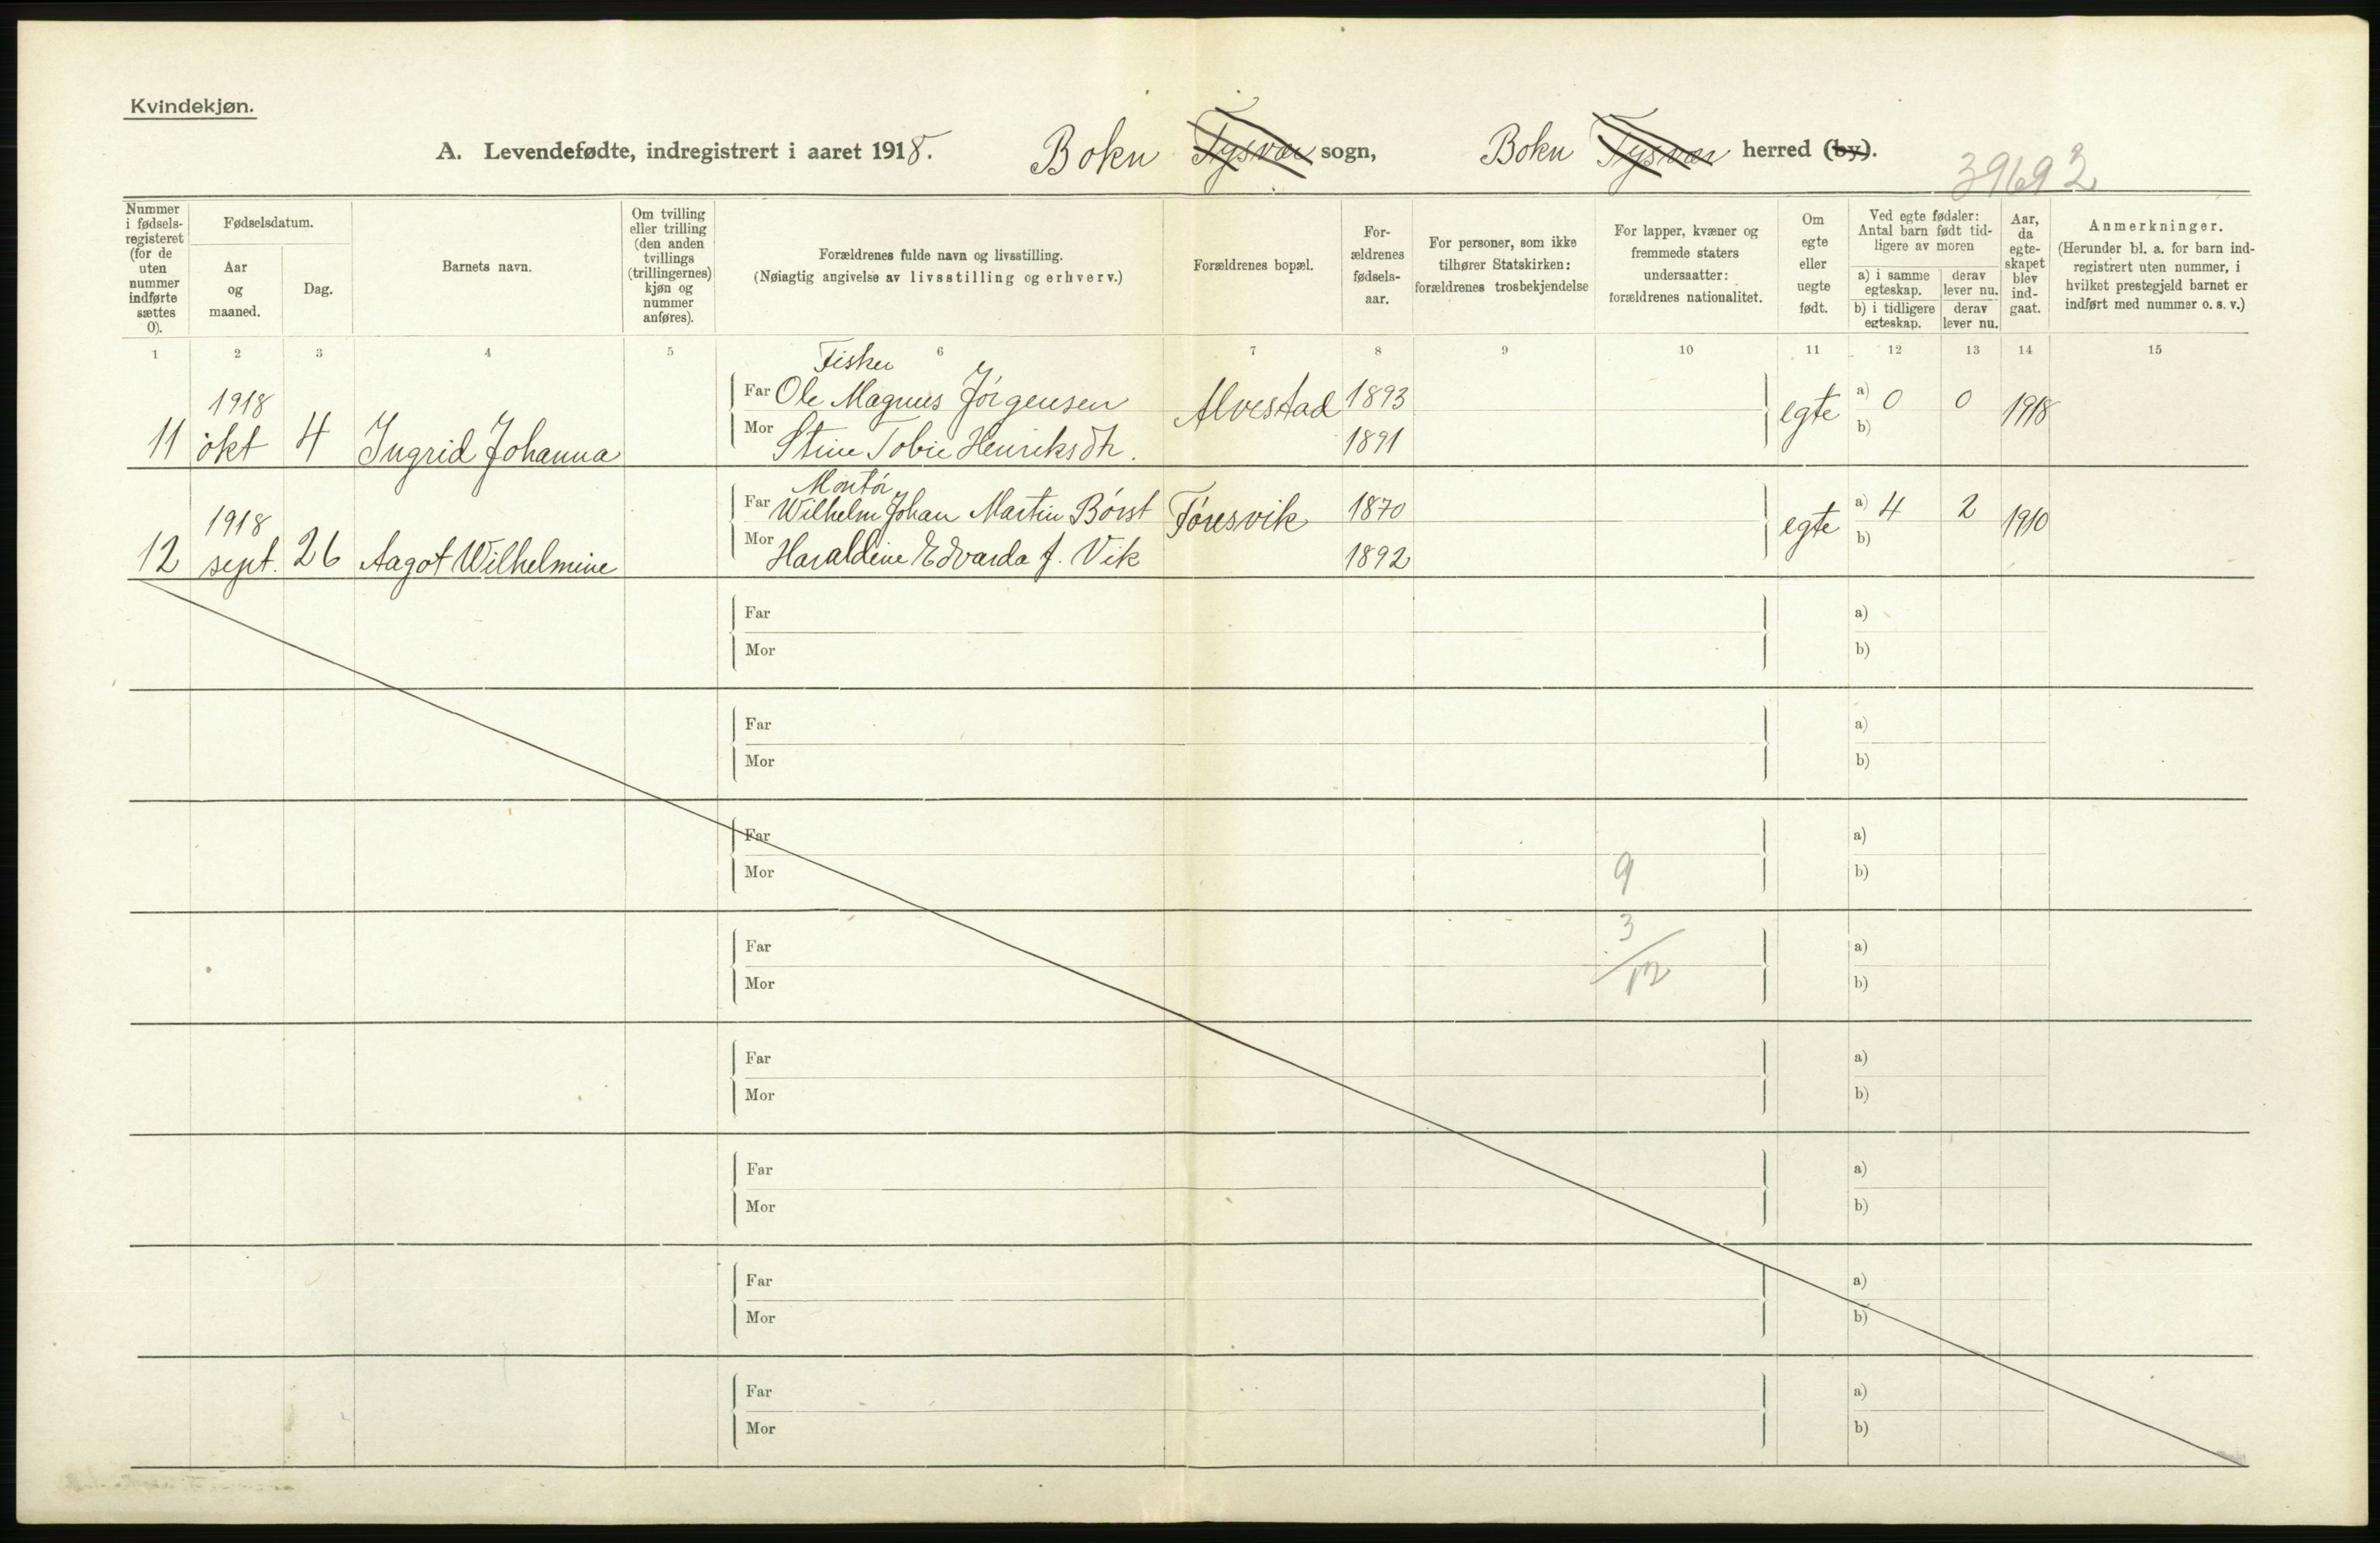 Kvindekjøn.
A. Levendefødte, indregistrert i aaret 1918. Bokn Tysvær sogn, Bokn Tysvær herred (by).
39692
Nummer i fødsels-registeret (for de uten nummer indførte sættes 0).
Fødselsdatum.
Aar og maaned.
Dag.
Barnets navn.
Om tvilling eller trilling (den anden tvillings (trillingernes) kjøn og nummer anføres).
Forældrenes fulde navn og livsstilling.
(Nøiagtig angivelse av livsstilling og erhverv.)
Forældrenes bopæl.
For-ældrenes fødsels-aar.
For personer, som ikke tilhører Statskirken: forældrenes trosbekjendelse
For lapper, kvæner og fremmede staters undersaatter: forældrenes nationalitet.
Om egte eller uegte født.
Ved egte fødsler: Antal barn født tid-ligere av moren
a) i samme egteskap.
derav lever nu.
b) i tidligere egteskap.
derav lever nu.
Aar, da egte-skapet blev ind-gaat.
Anmerkninger.
(Herunder bl. a. for barn ind-registrert uten nummer, i hvilket prestegjeld barnet er indført med nummer o. s. v.)
1 2 3 4 5 6 7 8 9 10 11 12 13 14 15
Fisker
1918 Far Ole Magnus Jørgensen Alvestad 1893 egte a) 0 0 1918
11 okt 4 Ingrid Johanna Mor Stine Tobie Henriksdtr. 1891 b)
Montør
1918 Far Wilhelm Johan Martin Børst Føresvik 1870 egte a) 4 2 1910
12 sept. 26 Aagot Wilhelmine Mor Haraldine Edvarda f. Vik 1892 b)
Far a)
Mor b)
Far a)
Mor b)
Far a)
Mor 9 b)
3
Far a)
Mor 12 b)
Far a)
Mor b)
Far a)
Mor b)
Far a)
Mor b)
Far a)
Mor b)